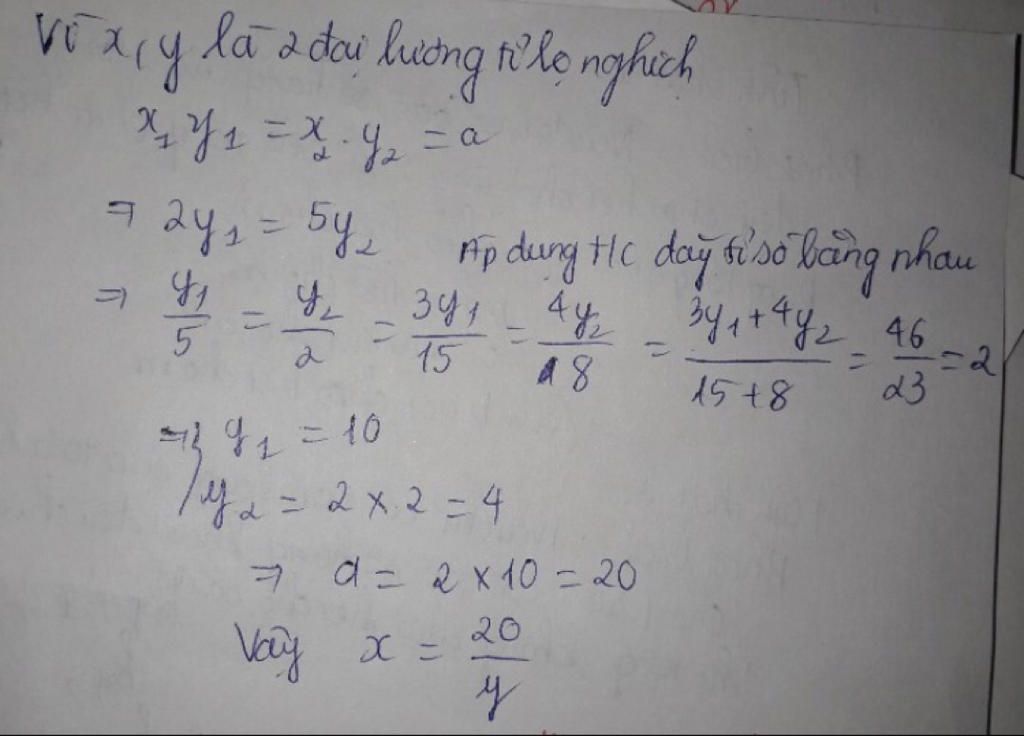 Vì x, y là 2 đại lượng tỉ lệ nghịch
x₁y₁ = x₂.y₂ = a
⇒ 2y₁ = 5y₂
Áp dụng t/c dãy tỉ số bằng nhau
⇒ y₁/5 = y₂/2 = 3y₁/15 = 4y₂/8 = 3y₁+4y₂/15+8 = 46/23 = 2
⇒ y₁ = 10
y₂ = 2 x 2 = 4
⇒ a = 2 x 10 = 20
Vậy x = 20/y